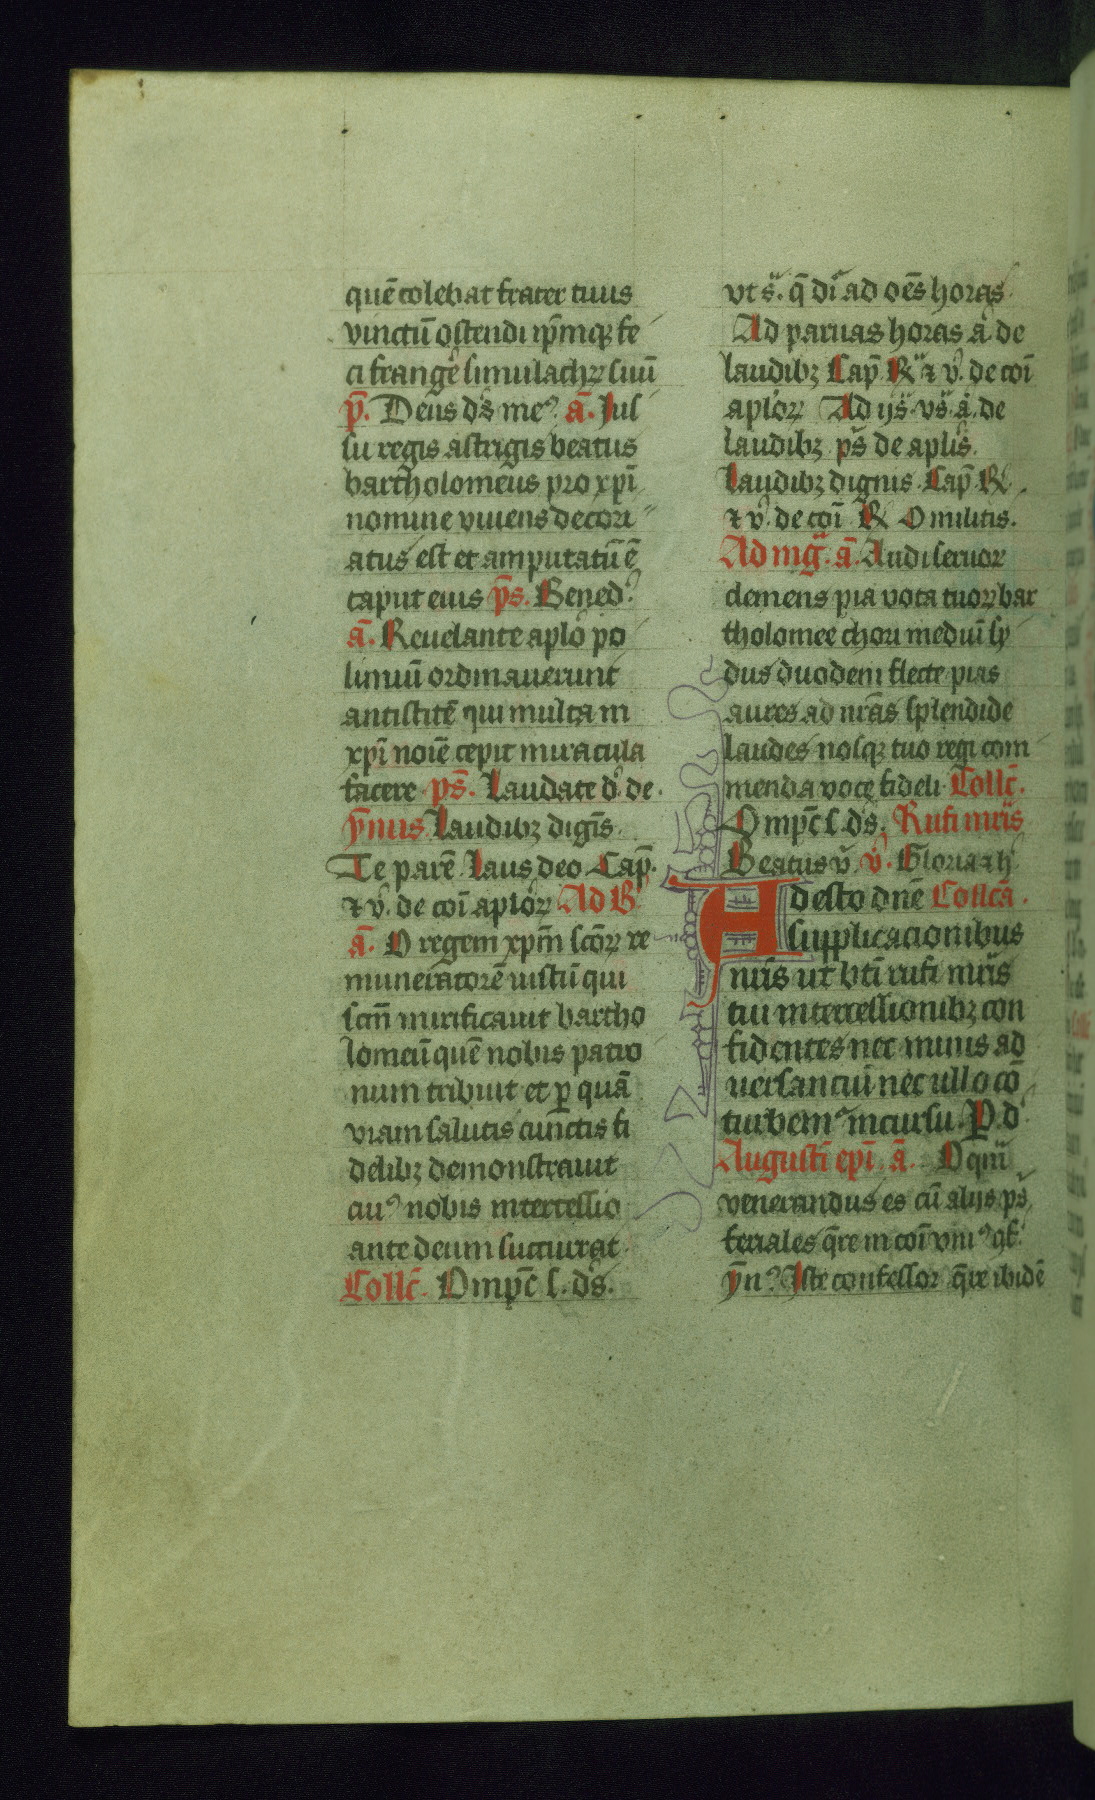 quē colebat frater tuus
vinctū ostendi ip̄mqꝫ fe
ci frangē simulachꝝ suū
p̄. Deus ds̄ meꝰ. ā. Jus
su regis astrigis beatus
bartholomeus pro xp̄i
nomine viuens decori
atus est et amputatū ē
caput eius p̄s. Bened̄.
ā. Reuelante aplo po
limiū ordinauerunt
antistitē qui multa in
xp̄i noīe cepit miracula
facere. ps̄. Laudate d. de.
ȳmus Laudibꝫ digīs.
Te parē. Laus deo. Cap̄.
⁊ v̄. de coī aploꝝ Ad B
ā. O regem xp̄m scōꝝ re
muneratorē iustū qui
scm̄ mirificauit bartho
lomeū quē nobis patro
num tribuit et ꝑ quā
viam salutis cunctis fi
delibꝫ demonstrauit
cuiꝰ nobis intercessio
ante deum succurrat.
Collc̄. Omp̄c s. ds̄.
vt s̄. q̄ dr̄ ad oēs horas.
Ad paruas horas ā de
laudibꝫ Cap̄. ℟ ⁊ v̄. de coī
aploꝝ Ad ijs̄ vs̄ ā. de
laudibꝫ ps̄ de aplis.
Laudibꝫ dignis. Cap̄ ℟.
⁊ v̄. de coī ℟ O militis.
Ad mḡ. ā. Audi seruoꝝ
clemens pia vota tuoꝝ bar
tholomee chori meduī sy
dus duodeni flecte pias
aures ad nr̄as splendide
laudes nosqꝫ tuo regi com
menda voce fideli Collc̄.
Omp̄c s. ds̄. Rufi mr̄is
Beatus v̄. v̄. Gloria ⁊ h
Adesto dn̄e Collcā.
supplicacionibus
nr̄is ut bt̄i rufi mr̄is
tui intercessionibꝫ con
fidentes nec minis ad
uersanciū nec ullo cō
turbemᷣ incursu. P. d.
Augustī epī. ā. O qm̄
venerandus es cū alijs ps̄.
feriales q̄re in coī vniꝰ ꝯf.
ȳnꝰ. Iste confessor q̄re ibidē